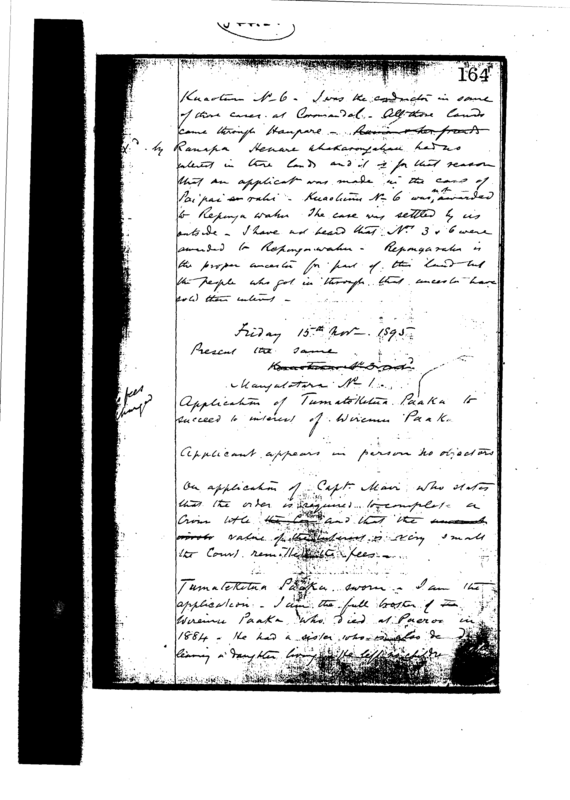 164
Kuaotunu No 6 - I was the conductor in some
of those cases at Coromandel - All those lands
came through Hanpare -
xd by Ranapia Henare Whakarongohau had no
interest in those lands and it is for that reason
that an applicat was made in the case of
Paipai - Kuaotunu No 6 was not awarded
to Repanga wahu The case was settled by us
outside - I have not heard that Nos 3 & 6 were
awarded to Repanga-wahu -
the proper ancestor for part of this land but
the people who got in through that ancestor have
sold their interest -
Friday 15th Nov. 1895
Present the same
Mangatotara No 1.
fees charged
Application of Tumatoketua Paaka to
succeed to interest of Wiremu Paaka
Applicant appears in person no objectors
On application of Capt Mair who states
that the order is required to complete a
Crown title and that the
value of the interest is very small
the Court remitted the fees -
Paaka sworn - I am the
application - I am the full brother of
Wiremu Paaka who died at Paeroa in
1884 - He had a sister who is also
leaving a daughter living - He left no